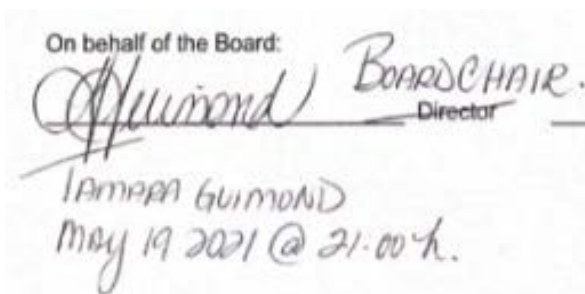 On behalf of the Board:
Guimond BOARD CHAIR.
Director
TAMARA GUIMOND
May 19 2021 @ 21.00 h.